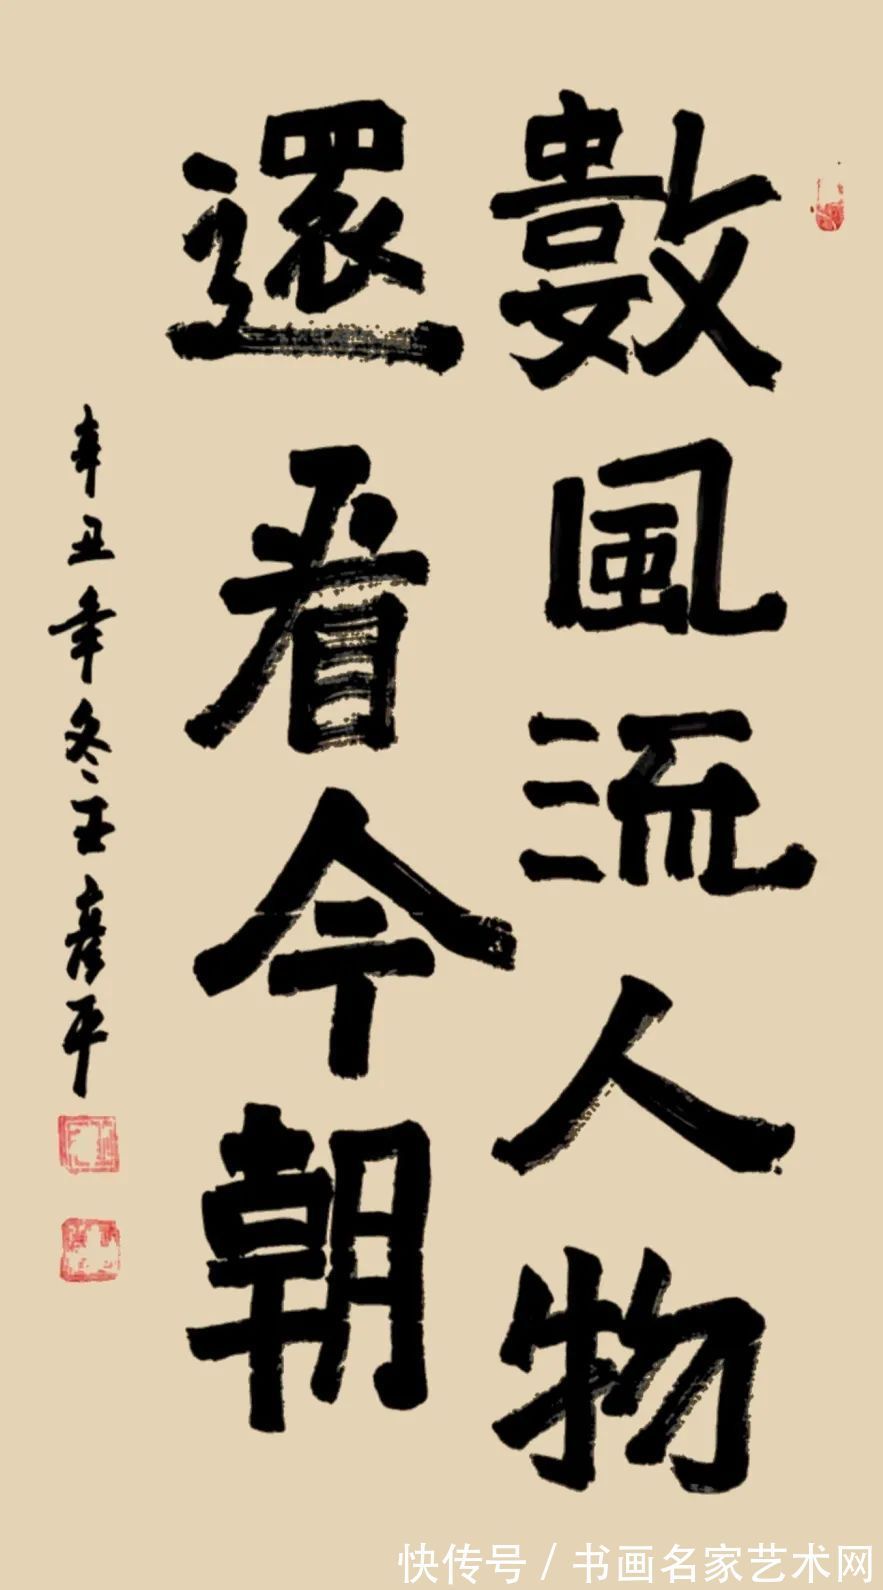 數風流人物
還看今朝
辛丑年冬王彦平
快传号/书画名家艺术网